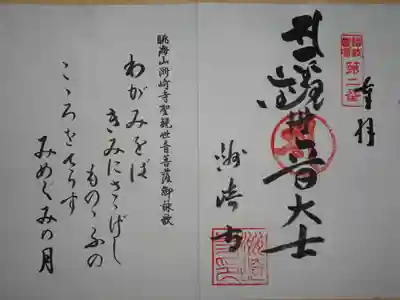 奉拝
第二番
聖観世音大士
洲崎寺
眺海山洲崎寺聖観世音菩薩御詠歌
わがみをば
きみにさゝげし
ものゝふの
こゝろをてらす
みめぐみの月